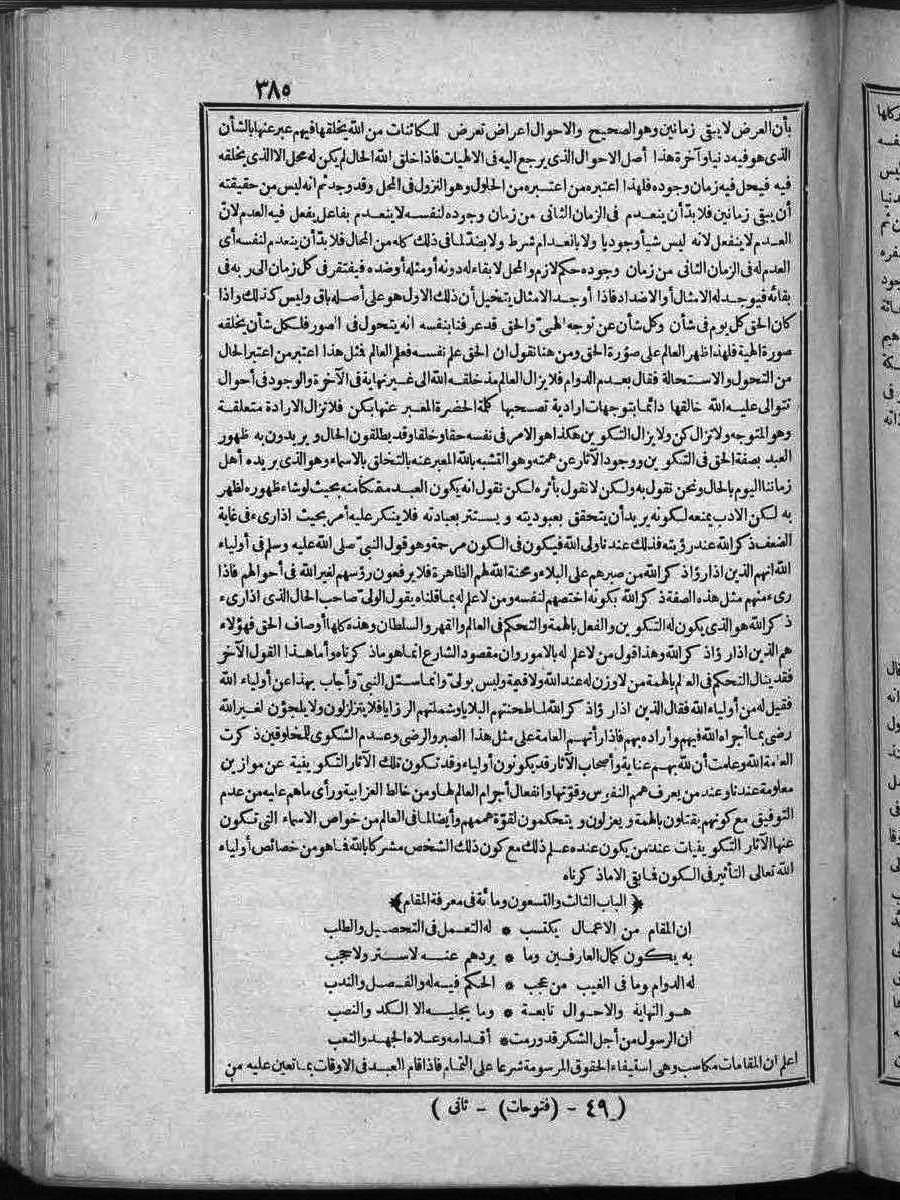 ٣٨٥
بأن العرض لا يبقى زمانين وهو الصحيح والاحوال اعراض تعرض للكائنات من الله يخلقها فيهم عبر عنها بالشأن
الذى هو فيه دنيا وآخرة هذا أصل الاحوال الذى يرجع اليه فى الالهيات فاذا خلق الله الحال لم يكن له محل الا الذى يخلقه
فيه فيحل فيه زمان وجوده فلهذا اعتبره من اعتبره من الحلول وهو النزول فى المحل وقد وجد ثم انه ليس من حقيقته
أن يبقى زمانين فلا بدّ أن ينعدم فى الزمان الثانى من زمان وجوده لنفسه لا ينعدم بفاعل يفعل فيه العدم لانّ
العدم لا ينفعل لانه ليس شيأ وجوديا ولا بانعدام شرط ولا بضدّ لما فى ذلك كله من المحال فلا بدّ أن ينعدم لنفسه أى
العدم له فى الزمان الثانى من زمان وجوده حكم لازم والمحل لا بقاء له دونه أو مثله أو ضده فيفتقر فى كل زمان الى ربه فى
بقائه فيوجد له الامثال أو الاضداد فاذا أوجد الامثال يتخيل أن ذلك الاول هو على أصله باق وليس كذلك واذا
كان الحق كل يوم فى شأن وكل شأن عن توجه الهىّ والحق قد عرفنا بنفسه انه يتحول فى الصور فلكل شأن يخلقه
صورة الهية فلهذا ظهر العالم على صورة الحق ومن هنا نقول ان الحق علم نفسه فعلم العالم فمثل هذا اعتبر من اعتبر الحال
من التحول والاستحالة فقال بعدم الدوام فلا يزال العالم مذ خلقه الله الى غير نهاية فى الآخرة والوجود فى أحوال
تتوالى عليه الله خالقها دائما بتوجهات ارادية تصحبها كلمة الحضرة المعبر عنها بكن فلا تزال الارادة متعلقة
وهو المتوجه ولا تزال كن ولا يزال التكوين هكذا هو الامر فى نفسه حقا وخلقا وقد يطلقون الحال ويريدون به ظهور
العبد بصفة الحق فى التكوين ووجود الآثار عن همته وهو التشبه بالله المعبر عنه بالتخلق بالاسماء وهو الذى يريده أهل
زماننا اليوم بالحال ونحن نقول به ولكن لا نقول بأثره لكن نقول انه يكون العبد متمكنا منه بحيث لو شاء ظهوره لظهر
به لكن الادب يمنعه لكونه يريد أن يتحقق بعبوديته ويستتر بعبادته فلا ينكر عليه أمر بحيث اذا رىء فى غاية
الضعف ذكر الله عند رؤيته فذلك عندنا ولى الله فيكون فى الكون مرحمة وهو قول النبىّ صلى الله عليه وسلم فى أولياء
الله انهم الذين اذا رؤا ذكر الله من صبرهم على البلاء ومحنة الله لهم الظاهرة فلا يرفعون رؤسهم لغير الله فى أحوالهم فاذا
رىء منهم مثل هذه الصفة ذكر الله بكونه اختصهم لنفسه ومن لا علم له بما قلناه يقول الولىّ صاحب الحال الذى اذا رىء
ذكر الله هو الذى يكون له التكوين والفعل بالهمة والتحكم فى العالم والقهر والسلطان وهذه كلها أوصاف الحق فهؤلاء
هم الذين اذا رؤا ذكر الله وهذا قول من لا علم له بالامور وان مقصود الشارع انما هو ما ذكرناه وأما هذا القول الآخر
فقد ينال التحكم فى العالم بالهمة من لا وزن له عند الله ولا قيمة وليس بولىّ وانما سئل النبىّ وأجاب بهذا عن أولياء الله
فقيل له من أولياء الله فقال الذين اذا رؤا ذكر الله لما طحنتهم البلايا وشملتهم الرزايا فلا يتزلزلون ولا يلجؤن لغير الله
رضى بما أجراه الله فيهم وأراده بهم فاذا رأتهم العامة على مثل هذا الصبر والرضى وعدم الشكوى للمخلوقين ذكرت
العامة الله وعلمت أن لله بهم عناية وأصحاب الآثار قد يكونون أولياء وقد تكون تلك الآثار التكوينية عن موازين
معلومة عندنا وعند من يعرف همم النفوس وقوتها وانفعال أجرام العالم لها ومن خالط العزابية ورأى ماهم عليه من عدم
التوفيق مع كونهم يقتلون بالهمة ويعزلون ويتحكمون لقوة هممهم وأيضا لما فى العالم من خواص الاسماء التى تكون
عنها الآثار التكوينيات عند من يكون عنده علم ذلك مع كون ذلك الشخص مشركا بالله فما هو من خصائص أولياء
الله تعالى التأثير فى الكون فما بقى الا ما ذكرناه
﴿الباب الثالث والتسعون ومائة فى معرفة المقام﴾
ان المقام من الاعمال يكتسب * له التعمل فى التحصيل والطلب
به يكون كمال العارفين وما * يردهم عنه لا ستر ولا حجب
له الدوام وما فى الغيب من عجب * الحكم فيه له والفصل والندب
هو النهاية والاحوال تابعة * وما يجليه الا الكد والنصب
ان الرسول من أجل الشكر قد ورمت * أقدامه وعلاه الجهد والتعب
اعلم ان المقامات مكاسب وهى استيفاء الحقوق المرسومة شرعا على التمام فاذا قام العبد فى الاوقات بما تعين عليه من
(٤٩ - (فتوحات) - ثانى)